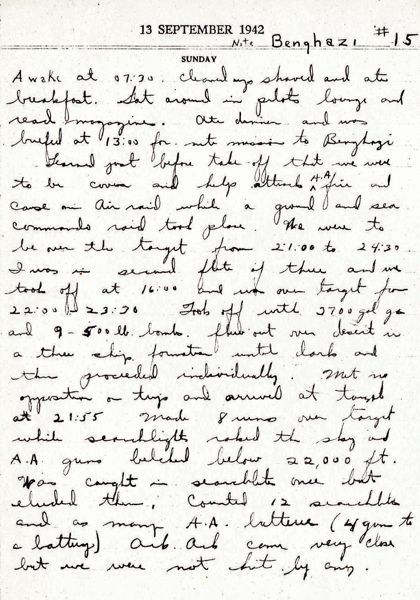 13 SEPTEMBER 1942
Nite Benghazi #15
SUNDAY
Awake at 07:30. Cleaned up shaved and ate
breakfast. Sat around in pilots lounge and
read magazines. Ate dinner and was
briefed at 13:00 for nite mission to Benghazi
Learned just before take off that we were
to be cover and help attract A.A. fire and
cause an Air raid while a ground and sea
commando raid took place. We were to
be over the target from 21:00 to 24:30.
I was in second flite of three and we
took off at 16:00 and was over target from
22:00 - 23:30 Took off with 2700 gal gas
and 9-500 lb. bombs. Flew out over desert in
a three ship formation until dark and
then proceeded individually. Met no
opposition on trip and arrived at target
at 21:55 Made 8 runs over target
while searchlights raked the sky and
A.A. guns belched below 22,000 ft.
Was caught in searchlite once but
eluded them. Counted 12 searchlites
and as many A.A. batteries (4 guns to
a battery) Ack. Ack came very close
but we were not hit by any.